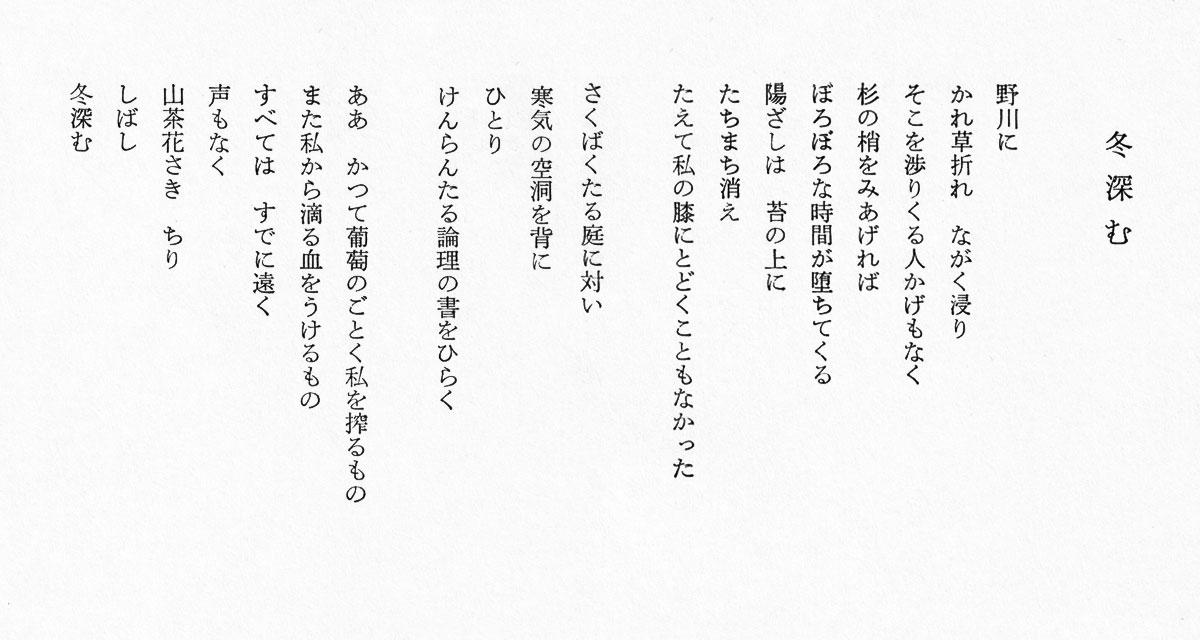 冬深む
野川に
かれ草折れ　ながく浸り
そこを渉りくる人かげもなく
杉の梢をみあげれば
ぼろぼろな時間が堕ちてくる
陽ざしは　苔の上に
たちまち消え
たえて私の膝にとどくこともなかった
さくばくたる庭に対い
寒気の空洞を背に
ひとり
けんらんたる論理の書をひらく
ああ　かつて葡萄のごとく私を搾るもの
また私から滴る血をうけるもの
すべては　すでに遠く
声もなく
山茶花さき　ちり
しばし
冬深む